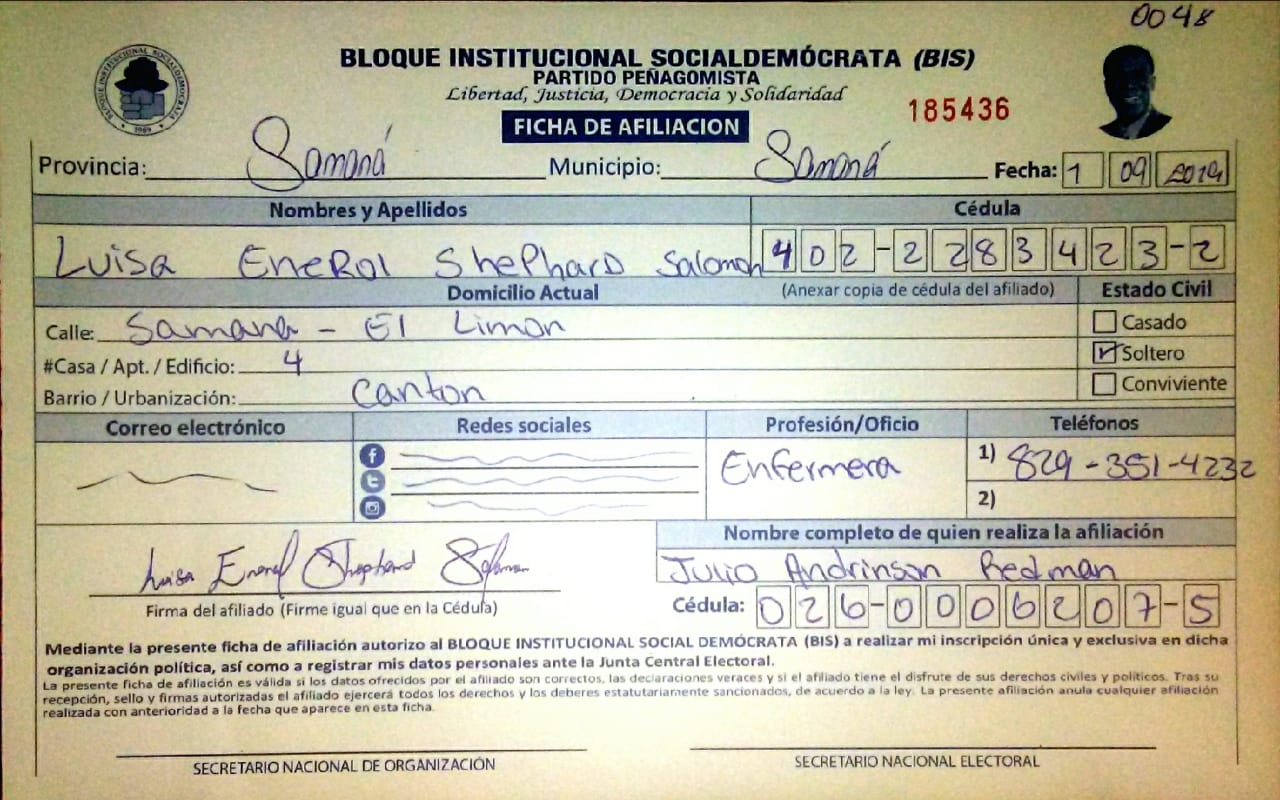 0048
BLOQUE INSTITUCIONAL SOCIALDEMÓCRATA (BIS)
PARTIDO PEÑAGOMISTA
Libertad, Justicia, Democracia y Solidaridad
185436
FICHA DE AFILIACION
Provincia: Samaná Municipio: Samaná Fecha: 1 09 2019
Nombres y Apellidos Cédula
Luisa Enerol Shephard Salomon 402-2283423-2
Domicilio Actual (Anexar copia de cédula del afiliado) Estado Civil
Calle: Samana - El Limon Casado
#Casa / Apt. / Edificio: 4 Soltero
Barrio / Urbanización: Canton Conviviente
Correo electrónico Redes sociales Profesión/Oficio Teléfonos
Enfermera 1) 829-351-4232
2)
Nombre completo de quien realiza la afiliación
Luisa Enerol Shephard Salomon Julio Andrinson Redman
Firma del afiliado (Firme igual que en la Cédula) Cédula: 026-0006207-5
Mediante la presente ficha de afiliación autorizo al BLOQUE INSTITUCIONAL SOCIAL DEMÓCRATA (BIS) a realizar mi inscripción única y exclusiva en dicha
organización política, así como a registrar mis datos personales ante la Junta Central Electoral.
La presente ficha de afiliación es válida si los datos ofrecidos por el afiliado son correctos, las declaraciones veraces y si el afiliado tiene el disfrute de sus derechos civiles y políticos. Tras su
recepción, sello y firmas autorizadas el afiliado ejercerá todos los derechos y los deberes estatutariamente sancionados, de acuerdo a la ley. La presente afiliación anula cualquier afiliación
realizada con anterioridad a la fecha que aparece en esta ficha.
SECRETARIO NACIONAL DE ORGANIZACIÓN SECRETARIO NACIONAL ELECTORAL